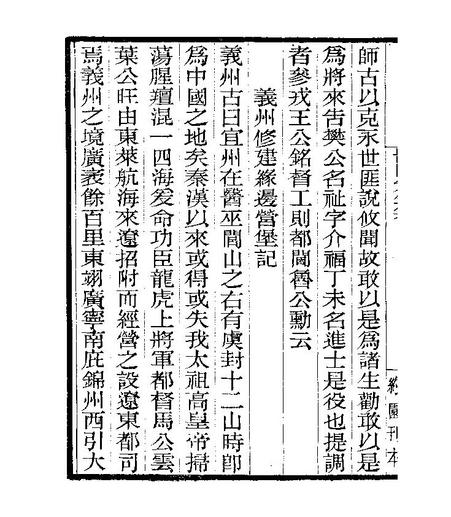 師古以克永世匪說攸聞故敢以是爲諸生勸敢以是
爲將來告樊公名祉字介福丁未名進士是役也提調
者參戎王公銘督工則都閫魯公勳云
義州修建緣邊營堡記
義州古曰宜州在醫巫閭山之右有虞封十二山時卽
爲中國之地矣秦漢以來或得或失我太祖高皇帝掃
蕩腥羶混一四海爰命功臣龍虎上將軍都督馬公雲
葉公旺由東萊航海來遼招附而經營之設遼東都司
焉義州之境廣袤餘百里東翊廣寧南庇錦州西引大
刊本